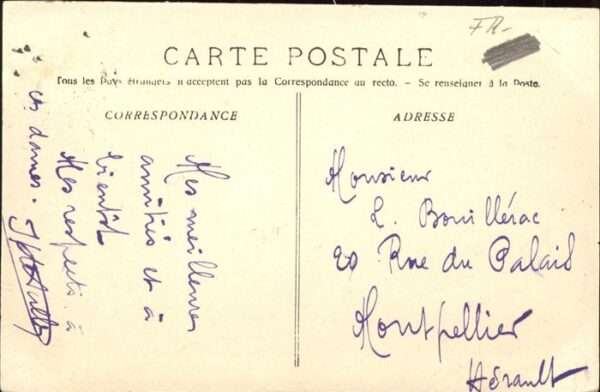 FR-
CARTE POSTALE
Tous les Pays étrangers n'acceptent pas la Correspondance au recto. - Se renseigner à la Poste.
CORRESPONDANCE
ADRESSE
Mes meilleures
amitiés et à
bientôt
Mes respects à
ces dames.
Monsieur
L. Bouillérac
20 Rue du Palais
Montpellier
Hérault